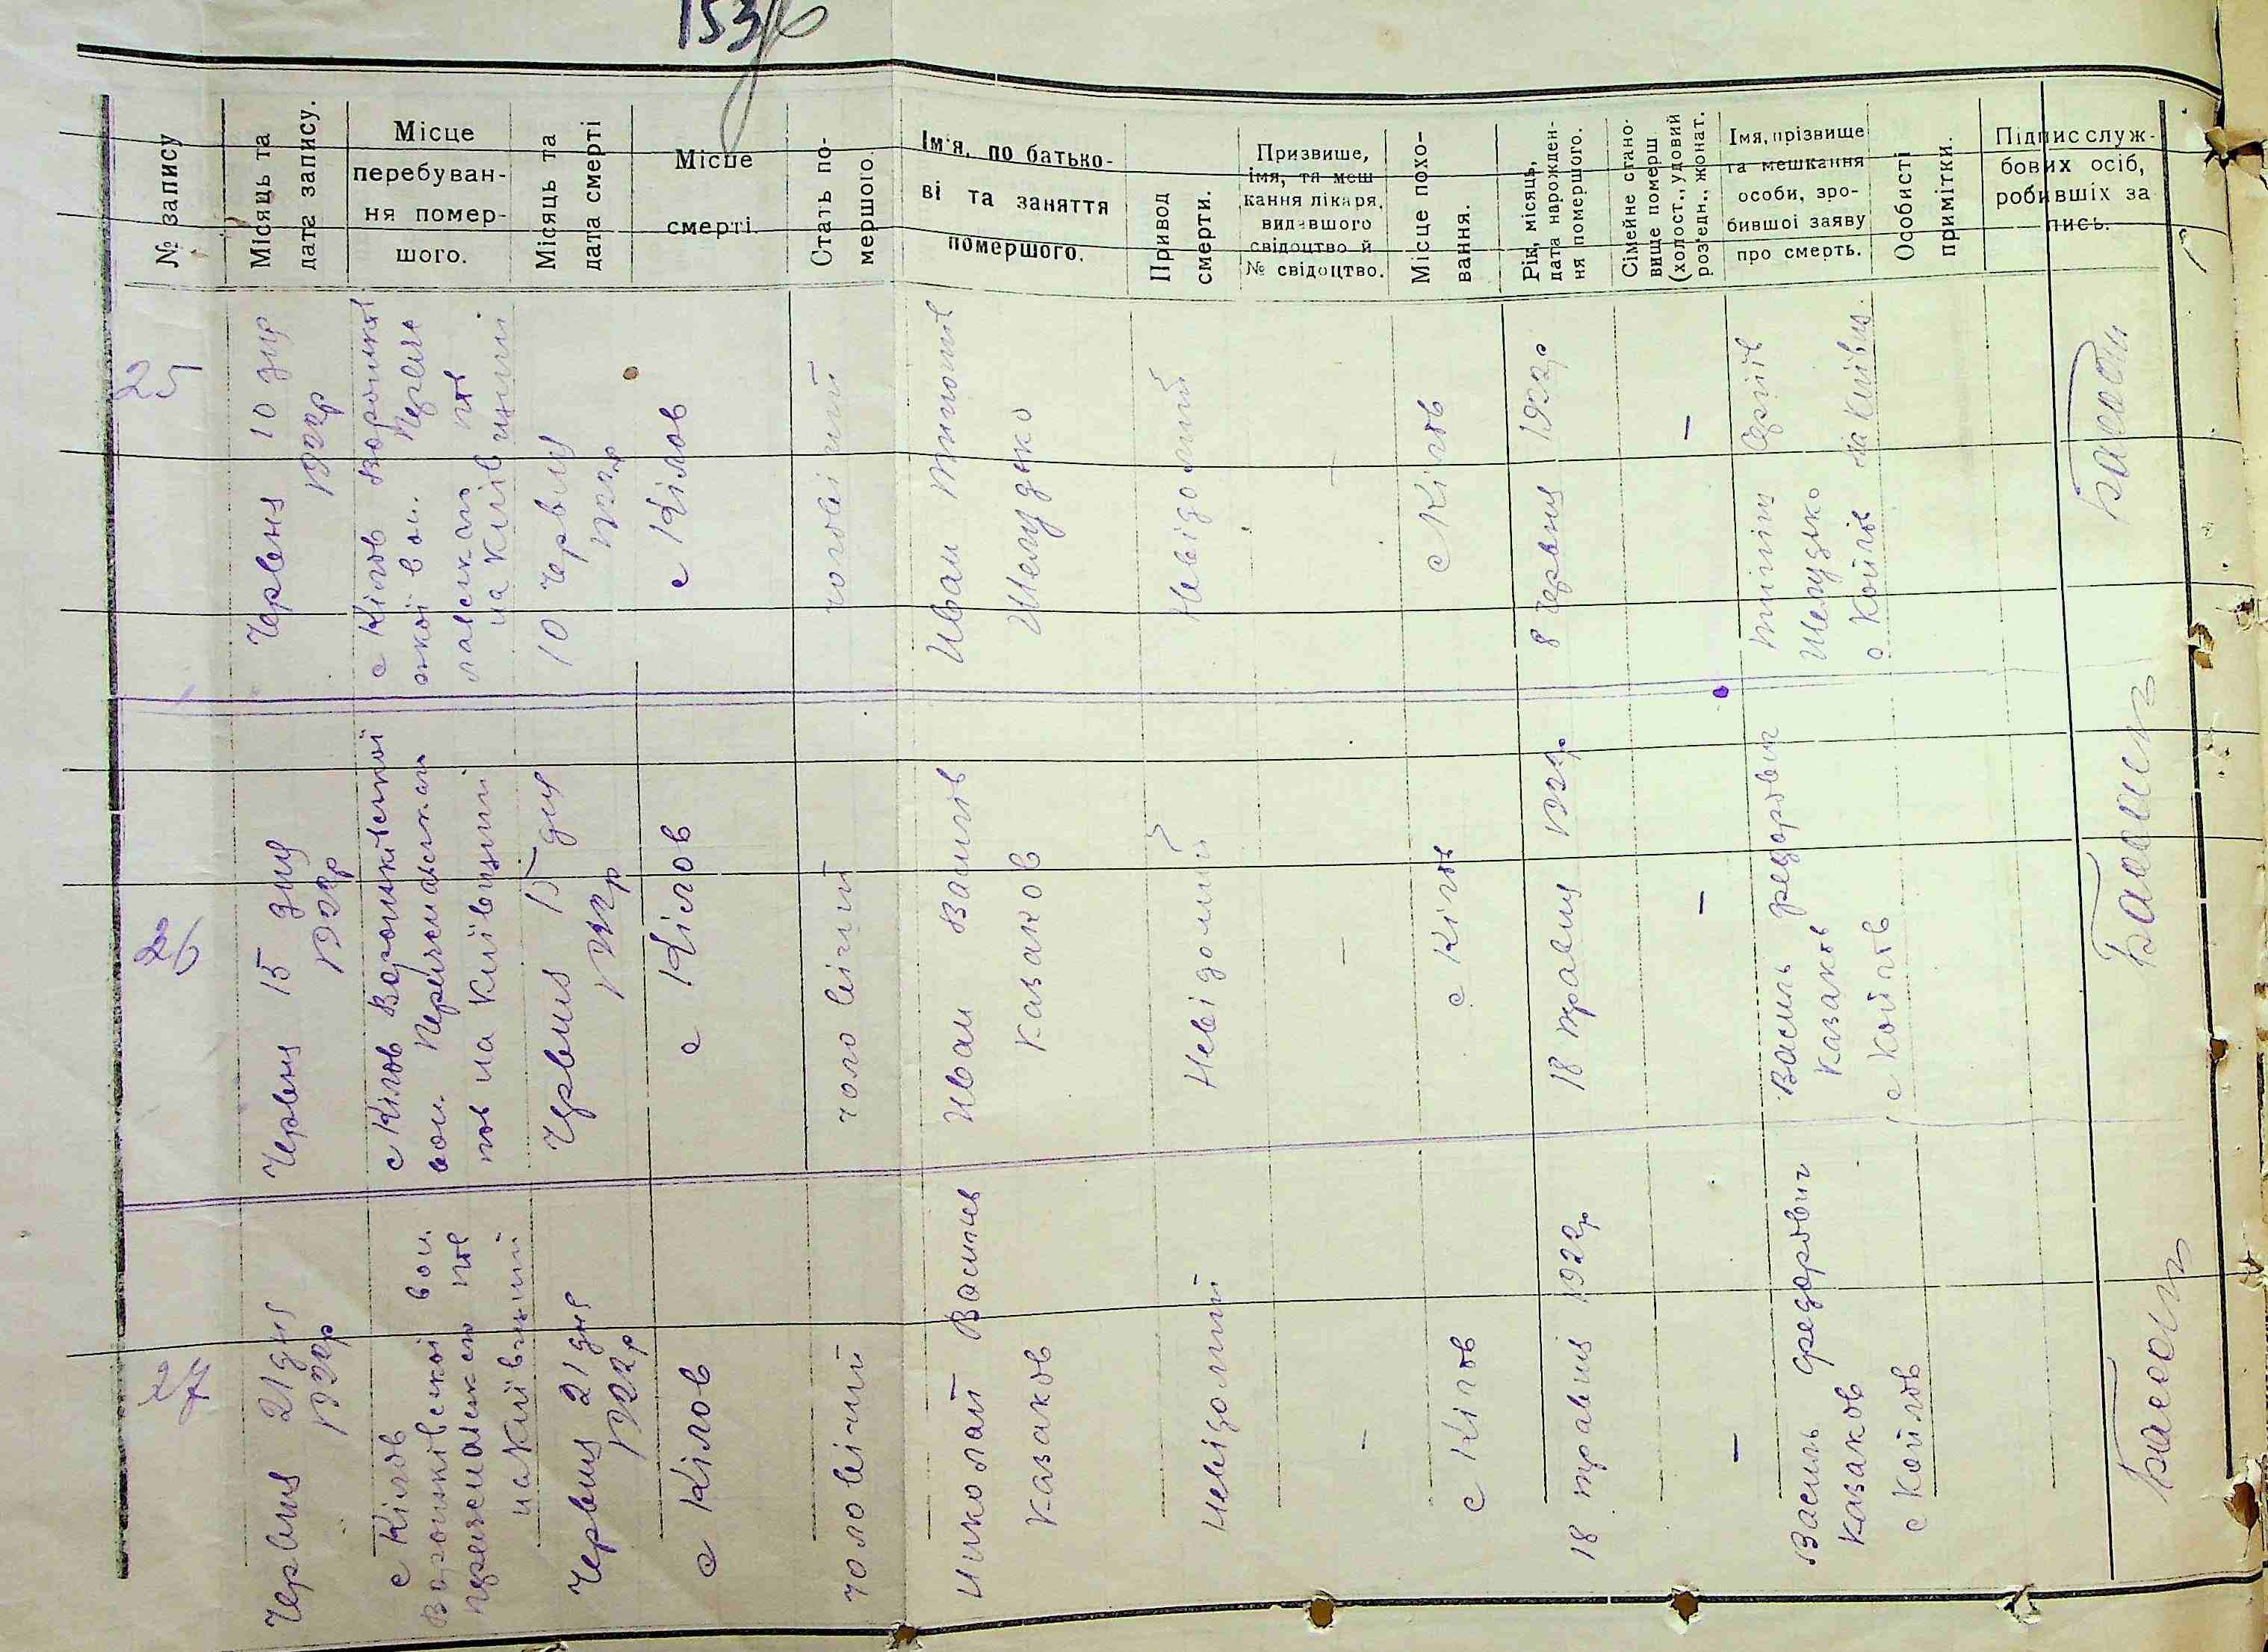 153
№ запису
Місяць та
дата запису.
Місце
перебуван-
ня помер-
шого.
Місяць та
дата смерті
Місце
смерті.
Стать по-
мершого.
Ім'я, по батько-
ві та заняття
помершого.
Привод
смерти.
Призвише,
імя, та меш
кання лікаря,
видавшого
свідоцтво й
№ свідоцтво.
Місце похо-
вання.
Рік, місяць,
дата нарожден-
ня помершого.
Сімейне стано-
вище померш
(холост., удовий
роз'едн., жонат.
Імя, прізвище
та мешкання
особи, зро-
бившоі заяву
про смерть.
Особисті
примітки.
Підпис служ-
бових осіб,
робившіх за
пись.
25
Червня 10 дня
1922р
с Кілов
на Київщині
10 червня
1922р
с Кілов
чоловічий
Иван
Шелудько
Невідомий
—
с Кілов
8 червня 1922р
—
Шелудько
с Койлов на Київщ.
26
Червня 15 дня
1922р
с Кілов Вороньківської
вол. Переяславськ
пов на Київщині
Червня 15 дня
1922р
с Кілов
чоловічий
Иван Василів
Казаков
Невідомий
—
с Кілов
18 травня 1922р.
—
Василь Федорович
Казаков
с Койлов
27
Червня 21 дня
1922р
с Кілов
Вороньківської вол.
Переяславськ пов
на Київщині
Червня 21 дня
1922р
с Кілов
чоловічий
Николай Василів
Казаков
Невідомий
—
с Кілов
18 травня 1922р
—
Василь Федорович
Казаков
с Койлов